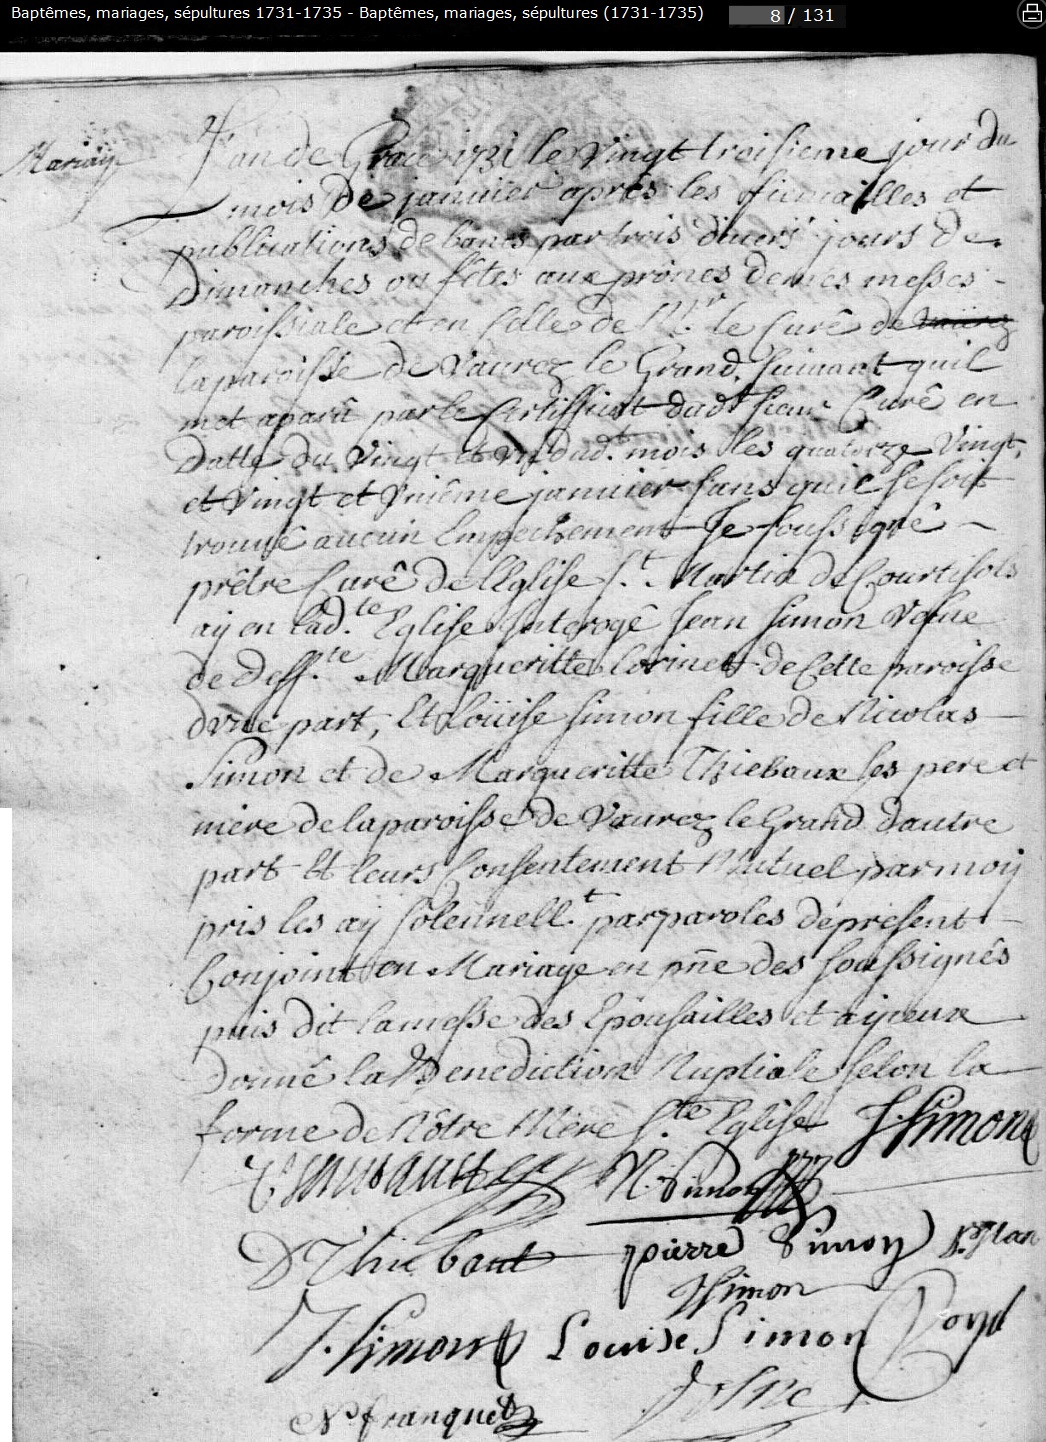 Baptêmes, mariages, sépultures 1731-1735 - Baptêmes, mariages, sépultures (1731-1735)
8 / 131
Mariage
L'an de Grace 1731 le vingt troisieme jour du
mois de janvier après les fiancailles et
publications de bans par trois divers jours de
Dimanches ou fêtes aux prônes de mes messes
paroissiale et en celle de Mr. le Curé de
la paroisse de Vavrez le Grand, suivant quil
met aparû par le Certifficat dudt. sieur Curé en
datte du vingt et un dud. mois les quatorze vingt,
et vingt et uniême janvier sans quil se soit
trouvé aucun Empechement Je soussigné
prêtre Curé de l'Eglise St. Martin de Courtisols
aÿ en lad.te Eglise Interogé Jean Simon veufue
de deff.te Margueritte Corinet de Cette paroisse
dune part, Et Loüise Simon fille de Nicolas
Simon et de Margueritte Thiebaux ses pere et
mere de la paroisse de Vavrez le Grand dautre
part Et leurs Consentement Mutuel par moy
pris les aÿ solennell.t par paroles de présent
Conjoint en Mariage en pñce des soussignés
puis dit la messe des Epousailles et aÿ eux
donné la Benediction Nuptiale selon la
forme de Nôtre Mère Ste Eglise J. Simon
N. Simon
D Thiebaut pierre Simon
J Simon
J. Simon Louise Simon
N franquet